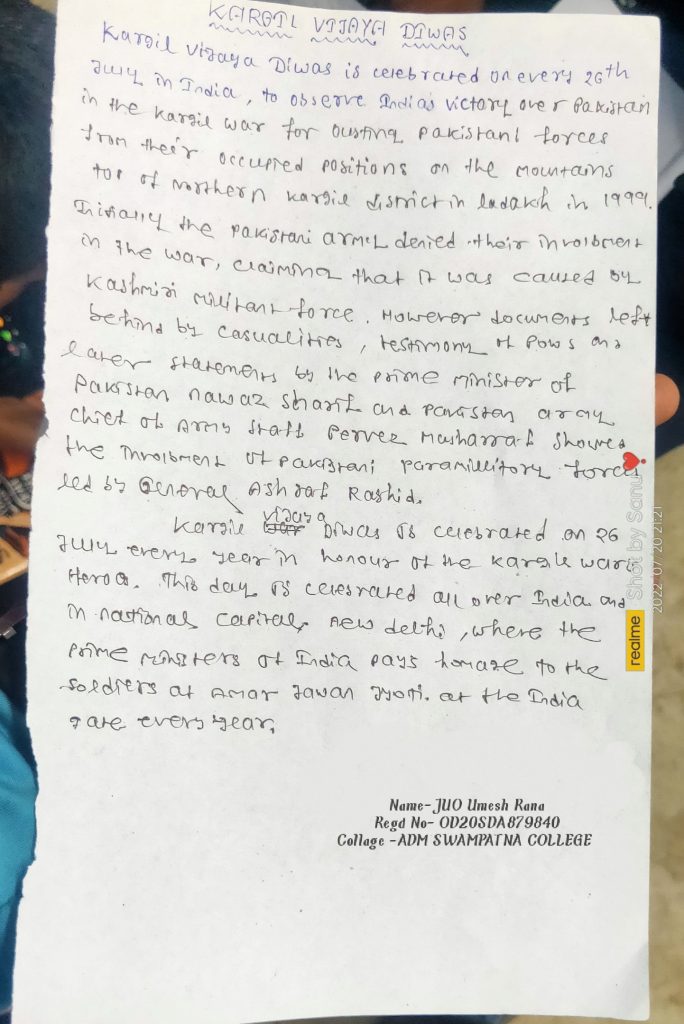 KARGIL VIJAYA DIWAS
Kargil vijaya Diwas is celebrated on every 26th
July in India, to observe India's victory over Pakistan
in the Kargil war for ousting pakistani forces
from their occupied positions on the mountains
top of northern kargil district in ladakh in 1999.
Initially the pakistani army denied their involbment
in the war, claiming that it was caused by
Kashmiri militant force. However documents left
behind by casualities, testimony of Pows and
later statements by the prime minister of
pakistan nawaz sharif and pakistan army
chief of Army staff Pervez Musharraf showed
the involbment of pakistani paramillitory forces
led by General Ashraf Rashid.
Kargil vijaya Diwas is celebrated on 26
July every year in honour of the Kargil war's
Heros. This day is celebrated all over India and
in national capital, new delhi, where the
prime ministers of India pays homage to the
soldiers at Amar Jawan Jyoti. at the India
gate every year.
Name-JUO Umesh Rana
Regd No- OD20SDA879840
Collage -ADM SWAMPATNA COLLEGE
realme Shot by Sanu
2022/07/20 21:21